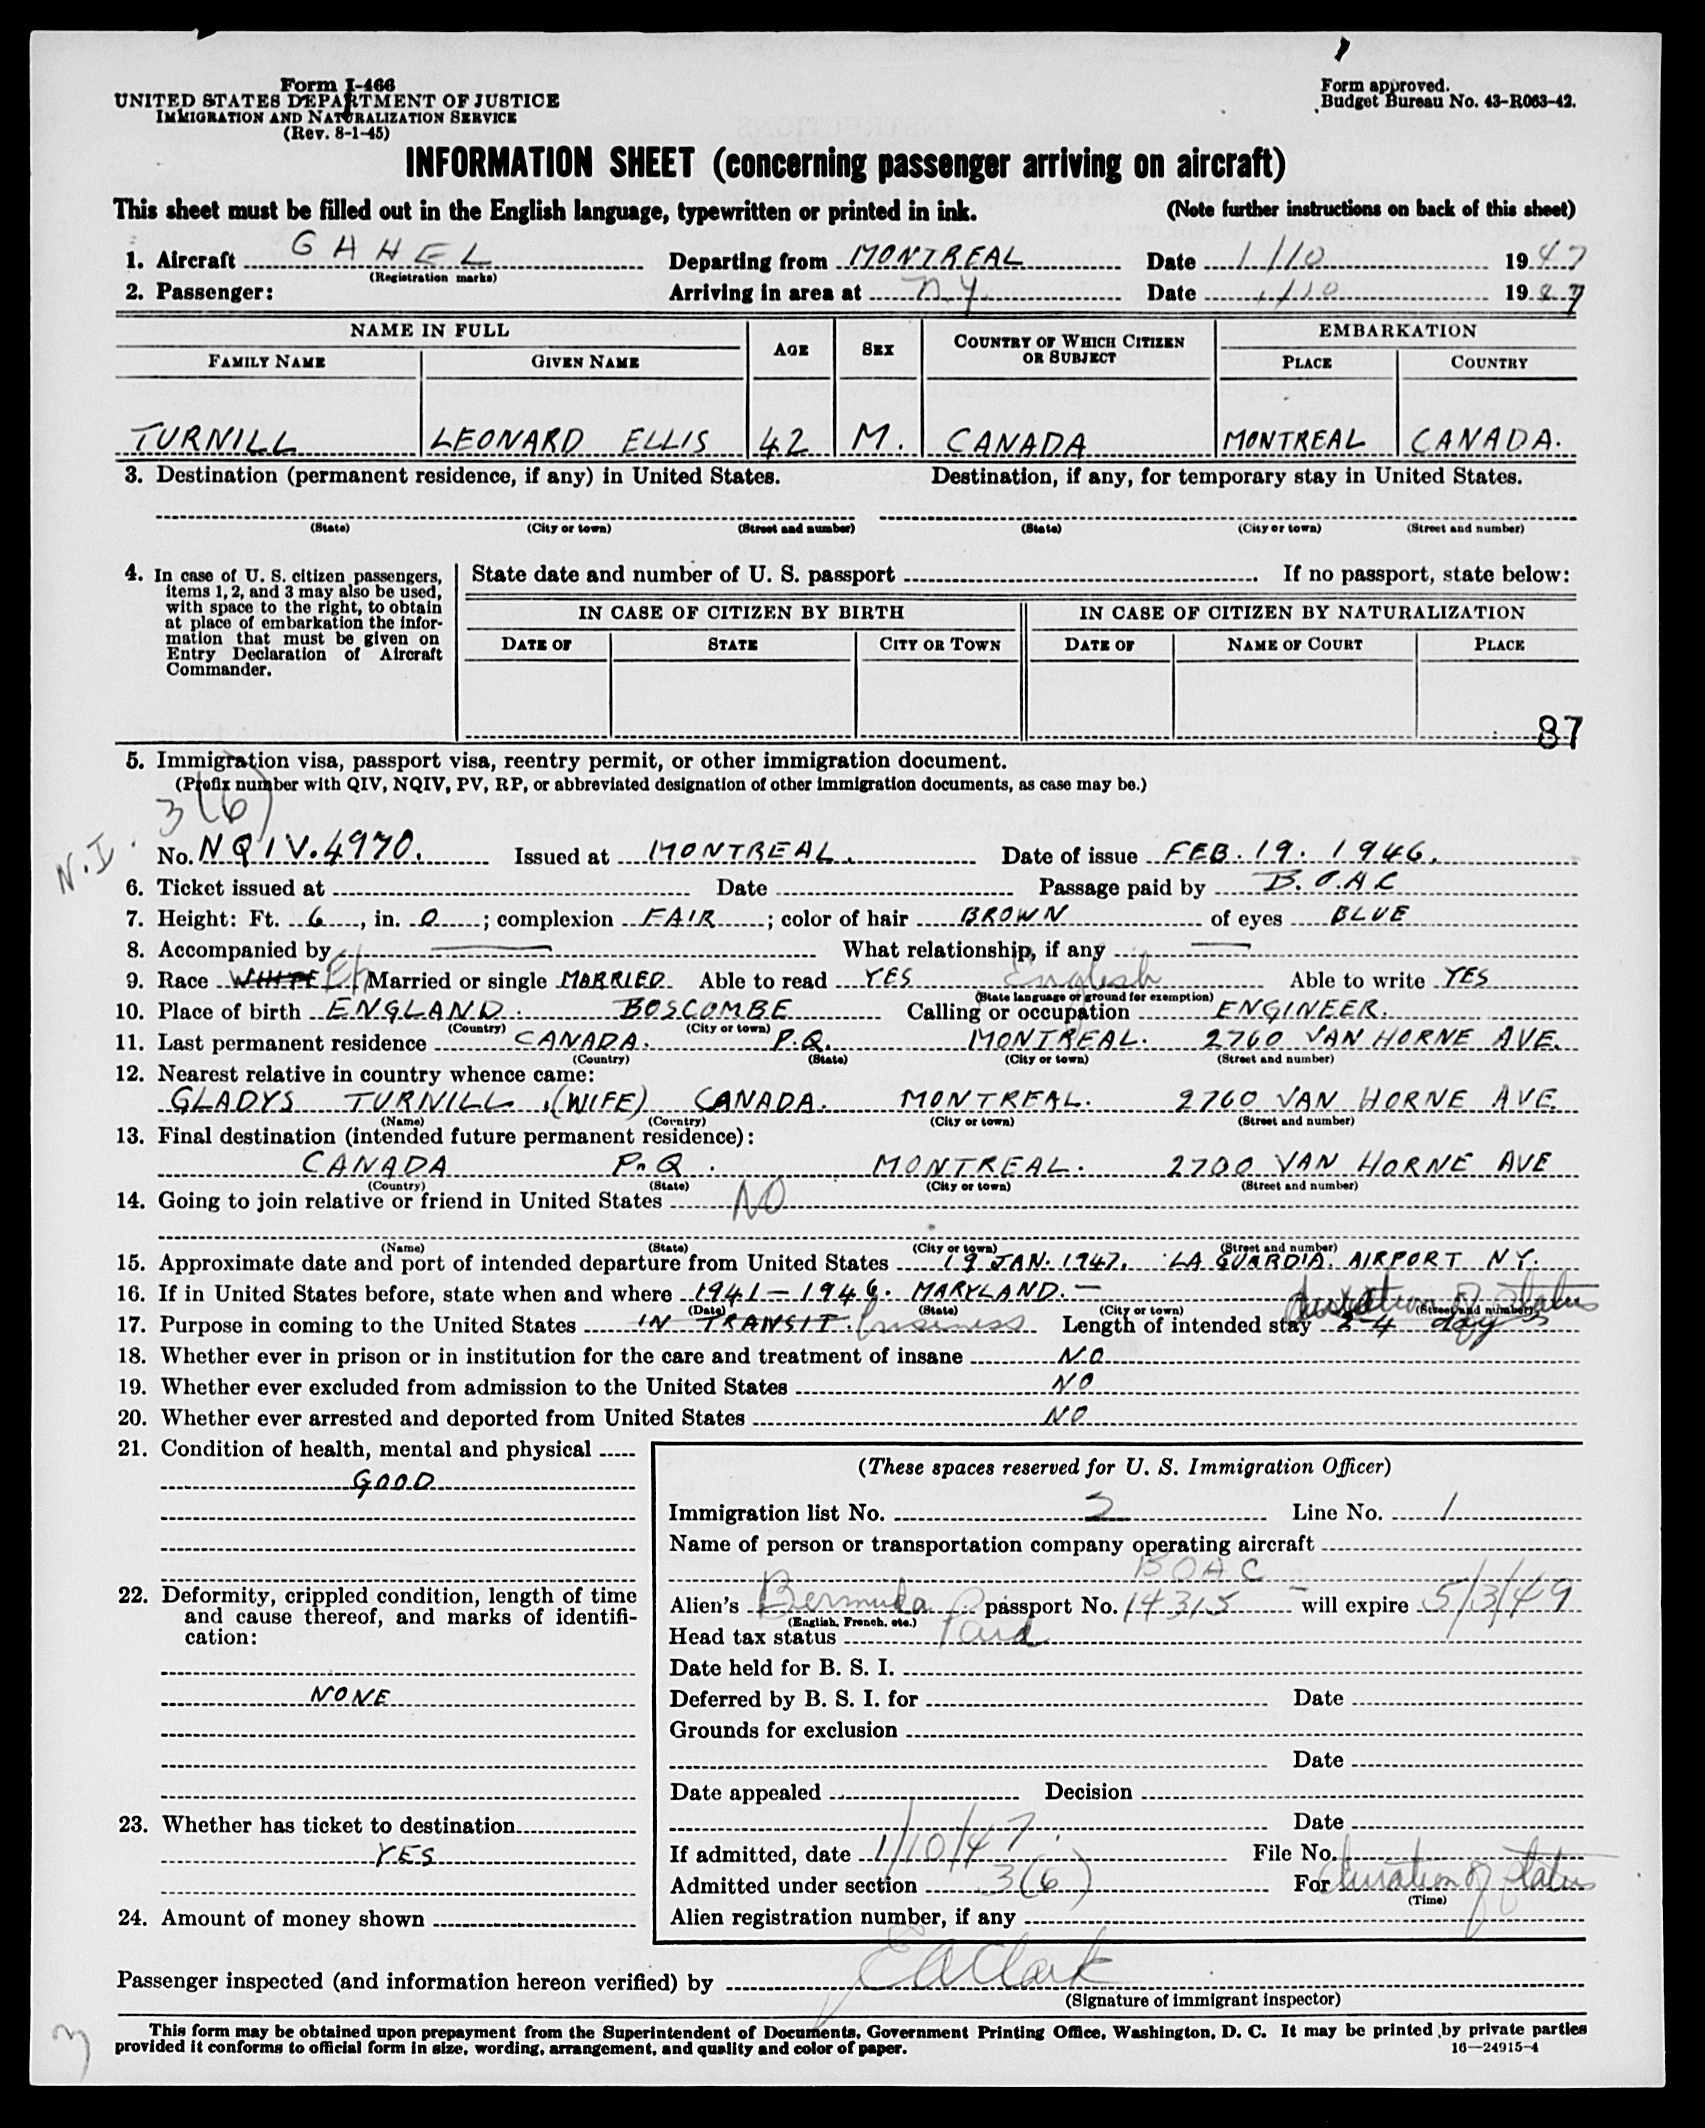 Form I-466
UNITED STATES DEPARTMENT OF JUSTICE
IMMIGRATION AND NATURALIZATION SERVICE
(Rev. 8-1-45)
Form approved.
Budget Bureau No. 43-R063-42.
INFORMATION SHEET (concerning passenger arriving on aircraft)
This sheet must be filled out in the English language, typewritten or printed in ink. (Note further instructions on back of this sheet)
1. Aircraft G A H E L Departing from MONTREAL Date 1/10 1947
(Registration marks)
2. Passenger: Arriving in area at N.Y. Date 1/10 1947
NAME IN FULL AGE SEX COUNTRY OF WHICH CITIZEN OR SUBJECT EMBARKATION
FAMILY NAME GIVEN NAME PLACE COUNTRY
TURNILL LEONARD ELLIS 42 M. CANADA MONTREAL CANADA.
3. Destination (permanent residence, if any) in United States. Destination, if any, for temporary stay in United States.
(State) (City or town) (Street and number) (State) (City or town) (Street and number)
4. In case of U. S. citizen passengers,
items 1, 2, and 3 may also be used,
with space to the right, to obtain
at place of embarkation the infor-
mation that must be given on
Entry Declaration of Aircraft
Commander.
State date and number of U. S. passport If no passport, state below:
IN CASE OF CITIZEN BY BIRTH IN CASE OF CITIZEN BY NATURALIZATION
DATE OF STATE CITY OR TOWN DATE OF NAME OF COURT PLACE
87
5. Immigration visa, passport visa, reentry permit, or other immigration document.
(Prefix number with QIV, NQIV, PV, RP, or abbreviated designation of other immigration documents, as case may be.)
3(6)
N.I.
No. NQIV.4970. Issued at MONTREAL. Date of issue FEB. 19. 1946.
6. Ticket issued at Date Passage paid by B.O.A.C
7. Height: Ft. 6, in. 0; complexion FAIR; color of hair BROWN of eyes BLUE
8. Accompanied by — What relationship, if any —
9. Race WHITE Married or single MARRIED Able to read YES English Able to write YES
(State language or ground for exemption)
10. Place of birth ENGLAND. BOSCOMBE Calling or occupation ENGINEER.
(Country) (City or town)
11. Last permanent residence CANADA. P.Q. MONTREAL. 2760 VAN HORNE AVE.
(Country) (State) (City or town) (Street and number)
12. Nearest relative in country whence came:
GLADYS TURNILL, (WIFE) CANADA. MONTREAL. 2760 VAN HORNE AVE.
(Name) (Country) (City or town) (Street and number)
13. Final destination (intended future permanent residence):
CANADA P.Q. MONTREAL. 2700 VAN HORNE AVE
(Country) (State) (City or town) (Street and number)
14. Going to join relative or friend in United States NO
(Name) (State) (City or town) (Street and number)
15. Approximate date and port of intended departure from United States 19 JAN. 1947. LA GUARDIA. AIRPORT N.Y.
16. If in United States before, state when and where 1941 — 1946. MARYLAND. —
(Date) (State) (City or town) (Street and number)
duration of status
17. Purpose in coming to the United States IN TRANSIT. business Length of intended stay 2-4 days
18. Whether ever in prison or in institution for the care and treatment of insane NO
19. Whether ever excluded from admission to the United States NO
20. Whether ever arrested and deported from United States NO
21. Condition of health, mental and physical
GOOD
22. Deformity, crippled condition, length of time
and cause thereof, and marks of identifi-
cation:
NONE
23. Whether has ticket to destination
YES
24. Amount of money shown
(These spaces reserved for U. S. Immigration Officer)
Immigration list No. 2 Line No. 1
Name of person or transportation company operating aircraft
BOAC
Alien's Bermuda passport No. 14315 will expire 5/3/49
(English, French, etc.)
Head tax status Paid
Date held for B. S. I.
Deferred by B. S. I. for Date
Grounds for exclusion
Date
Date appealed Decision
Date
If admitted, date 1/10/47. File No.
Admitted under section 3(6) For duration of status
(Time)
Alien registration number, if any
Passenger inspected (and information hereon verified) by E A Clark
(Signature of immigrant inspector)
3
This form may be obtained upon prepayment from the Superintendent of Documents, Government Printing Office, Washington, D. C. It may be printed by private parties
provided it conforms to official form in size, wording, arrangement, and quality and color of paper.
16—24915-4